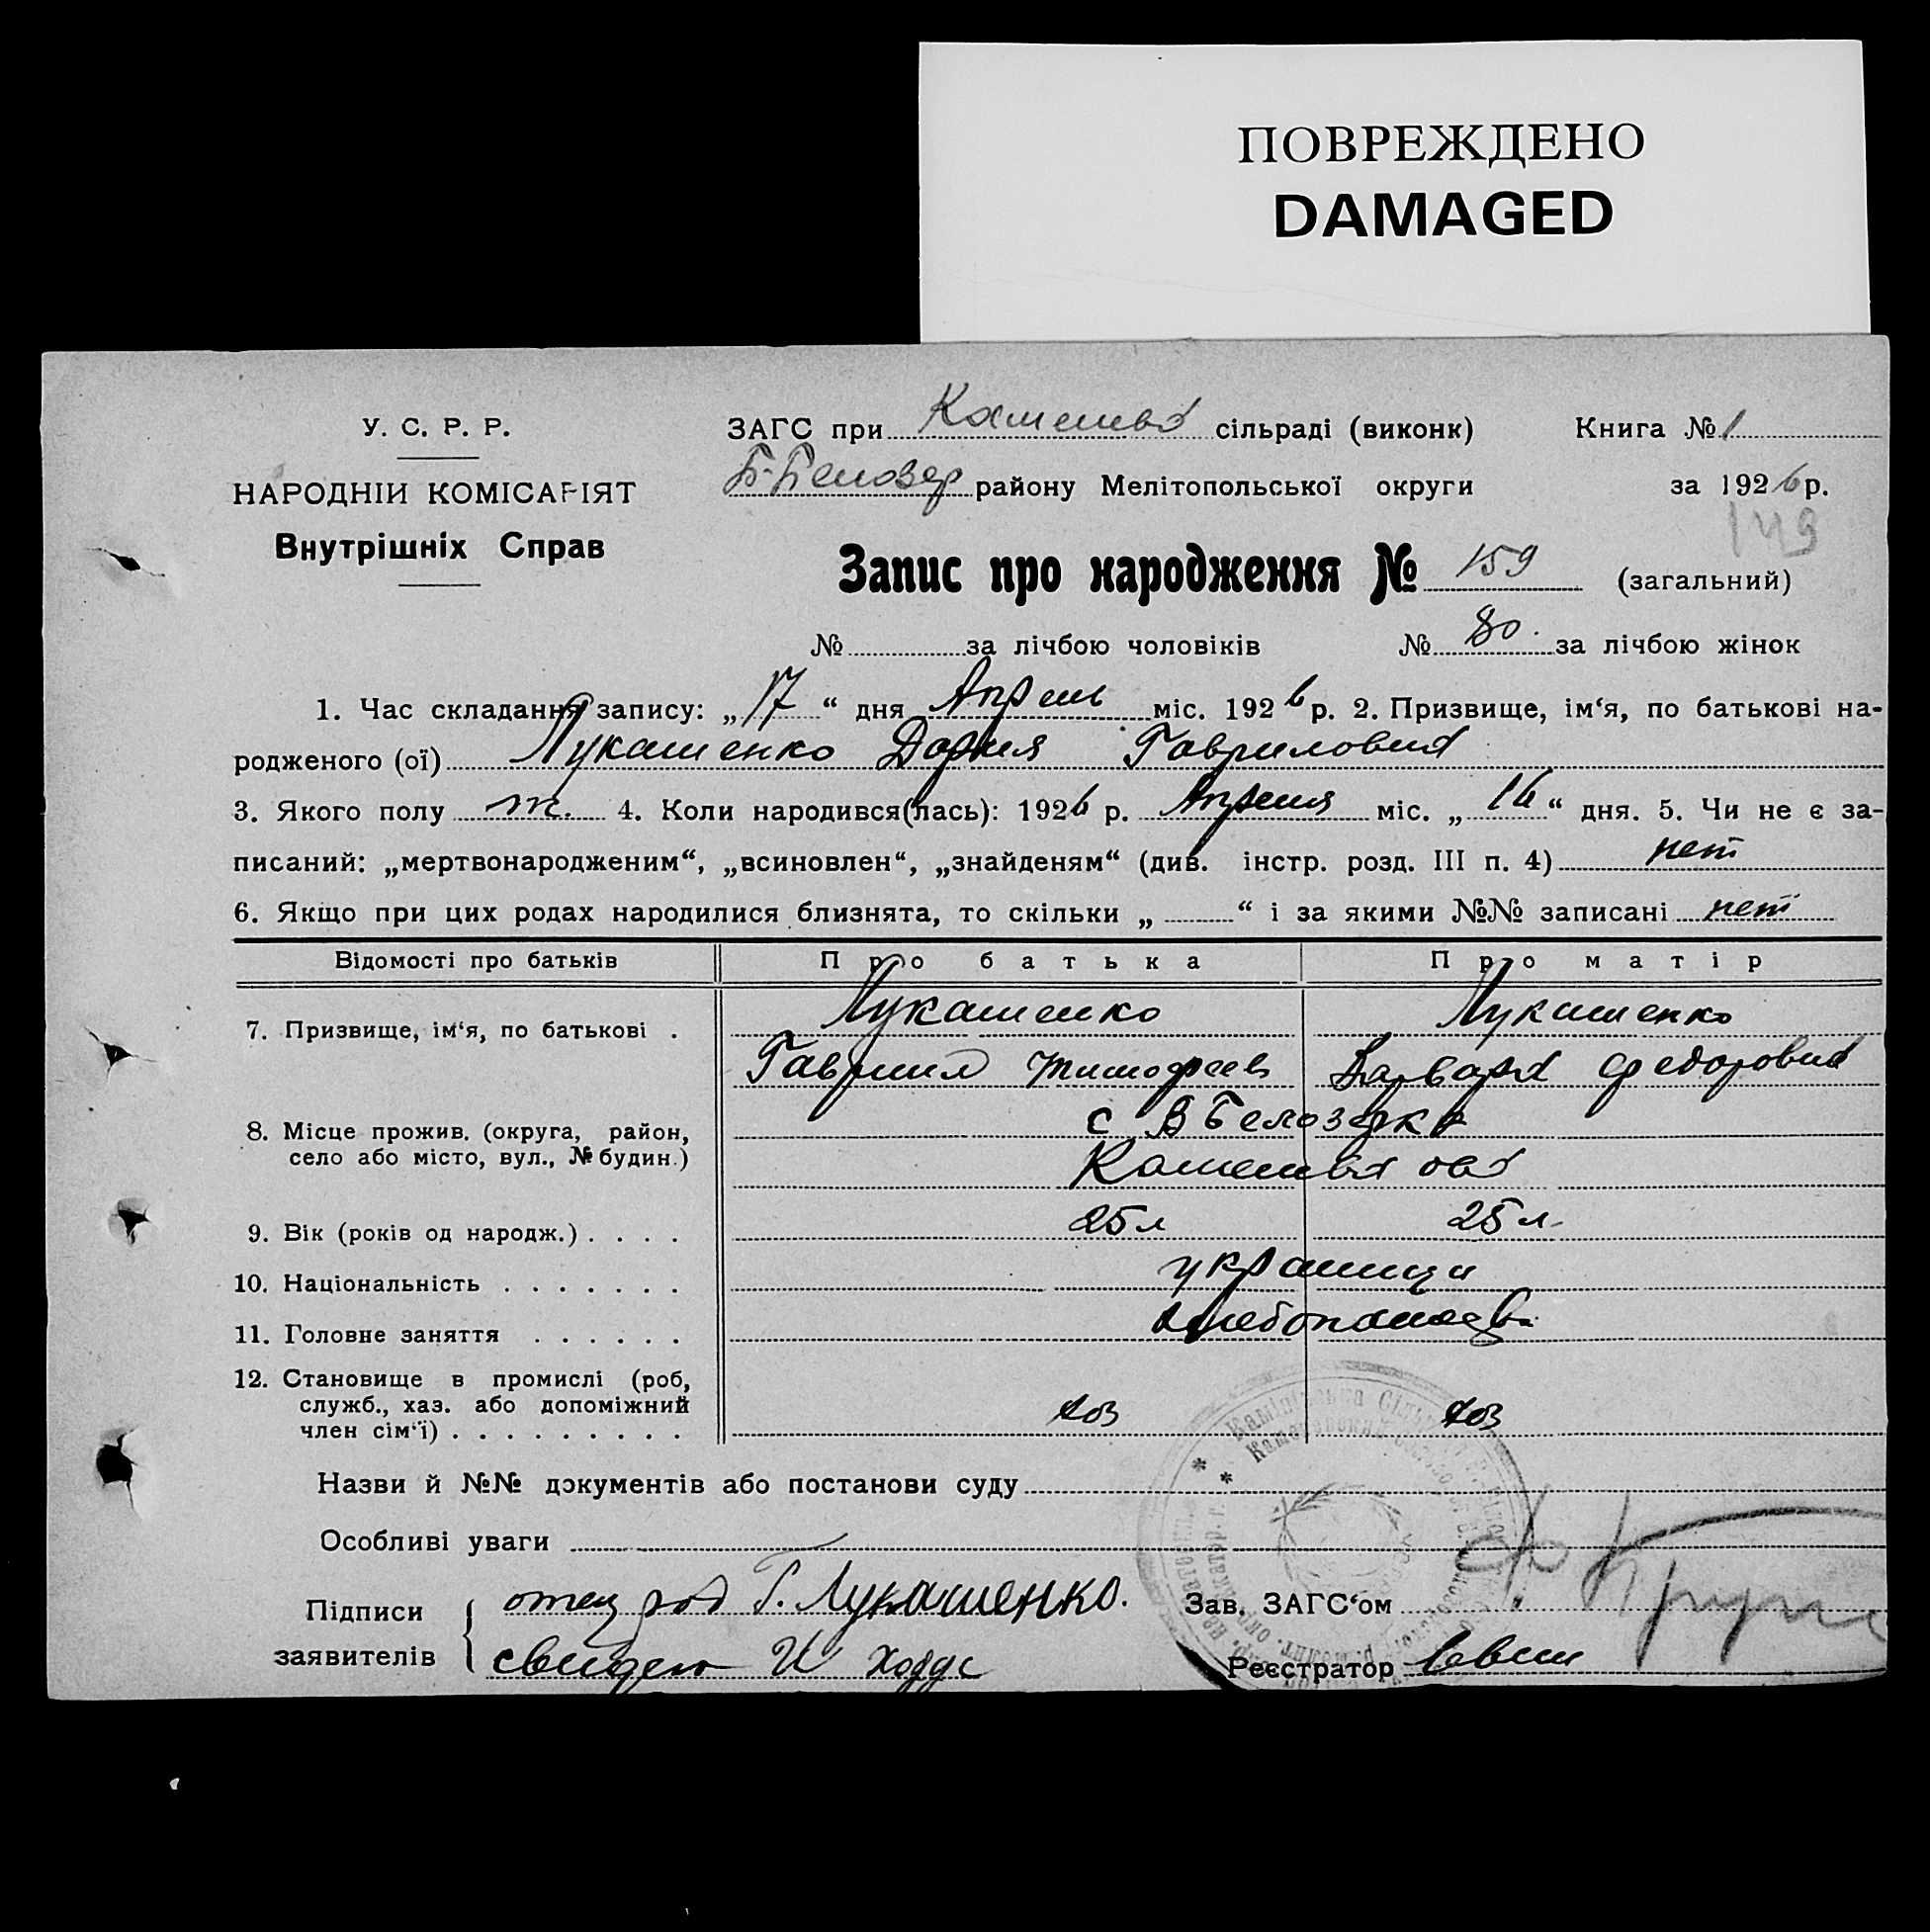 ПОВРЕЖДЕНО
DAMAGED
У. С. Р. Р.
НАРОДНІЙ КОМІСАРІЯТ
Внутрішніх Справ
ЗАГС при сільраді (виконк) Книга № 1
району Мелітопольської округи за 1926 р.
149
Запис про народження № 159 (загальний)
№ за лічбою чоловіків № 80. за лічбою жінок
1. Час складання запису: „17“ дня Апрель міс. 1926 р. 2. Призвище, ім‘я, по батькові на-
родженого (ої) Лукашенко Гавриловна
3. Якого полу ж. 4. Коли народився(лась): 1926 р. Апреля міс. „16“ дня. 5. Чи не є за-
писаний: „мертвонародженим“, „всиновлен“, „знайденям“ (див. інстр. розд. III п. 4) нет
6. Якщо при цих родах народилися близнята, то скільки „ “ і за якими №№ записані нет
Відомості про батьків Про батька Про матір
7. Призвище, ім‘я, по батькові . Лукашенко Лукашенко
Гавриил Тимофеев Варвара Федоровна
8. Місце прожив. (округа, район, с В Белозерка
село або місто, вул., № будин.)
9. Вік (років од народж.) . . . . 25 л 25 л.
10. Національність . . . . . . . украинци
11. Головне заняття . . . . . .
12. Становище в промислі (роб,
служб., хаз. або допоміжний хоз хоз
член сім‘ї) . . . . . . . . .
Назви й №№ документів або постанови суду
Особливі уваги
Підписи отец Г. Лукашенко. Зав. ЗАГС‘ом
заявителів И Реєстратор